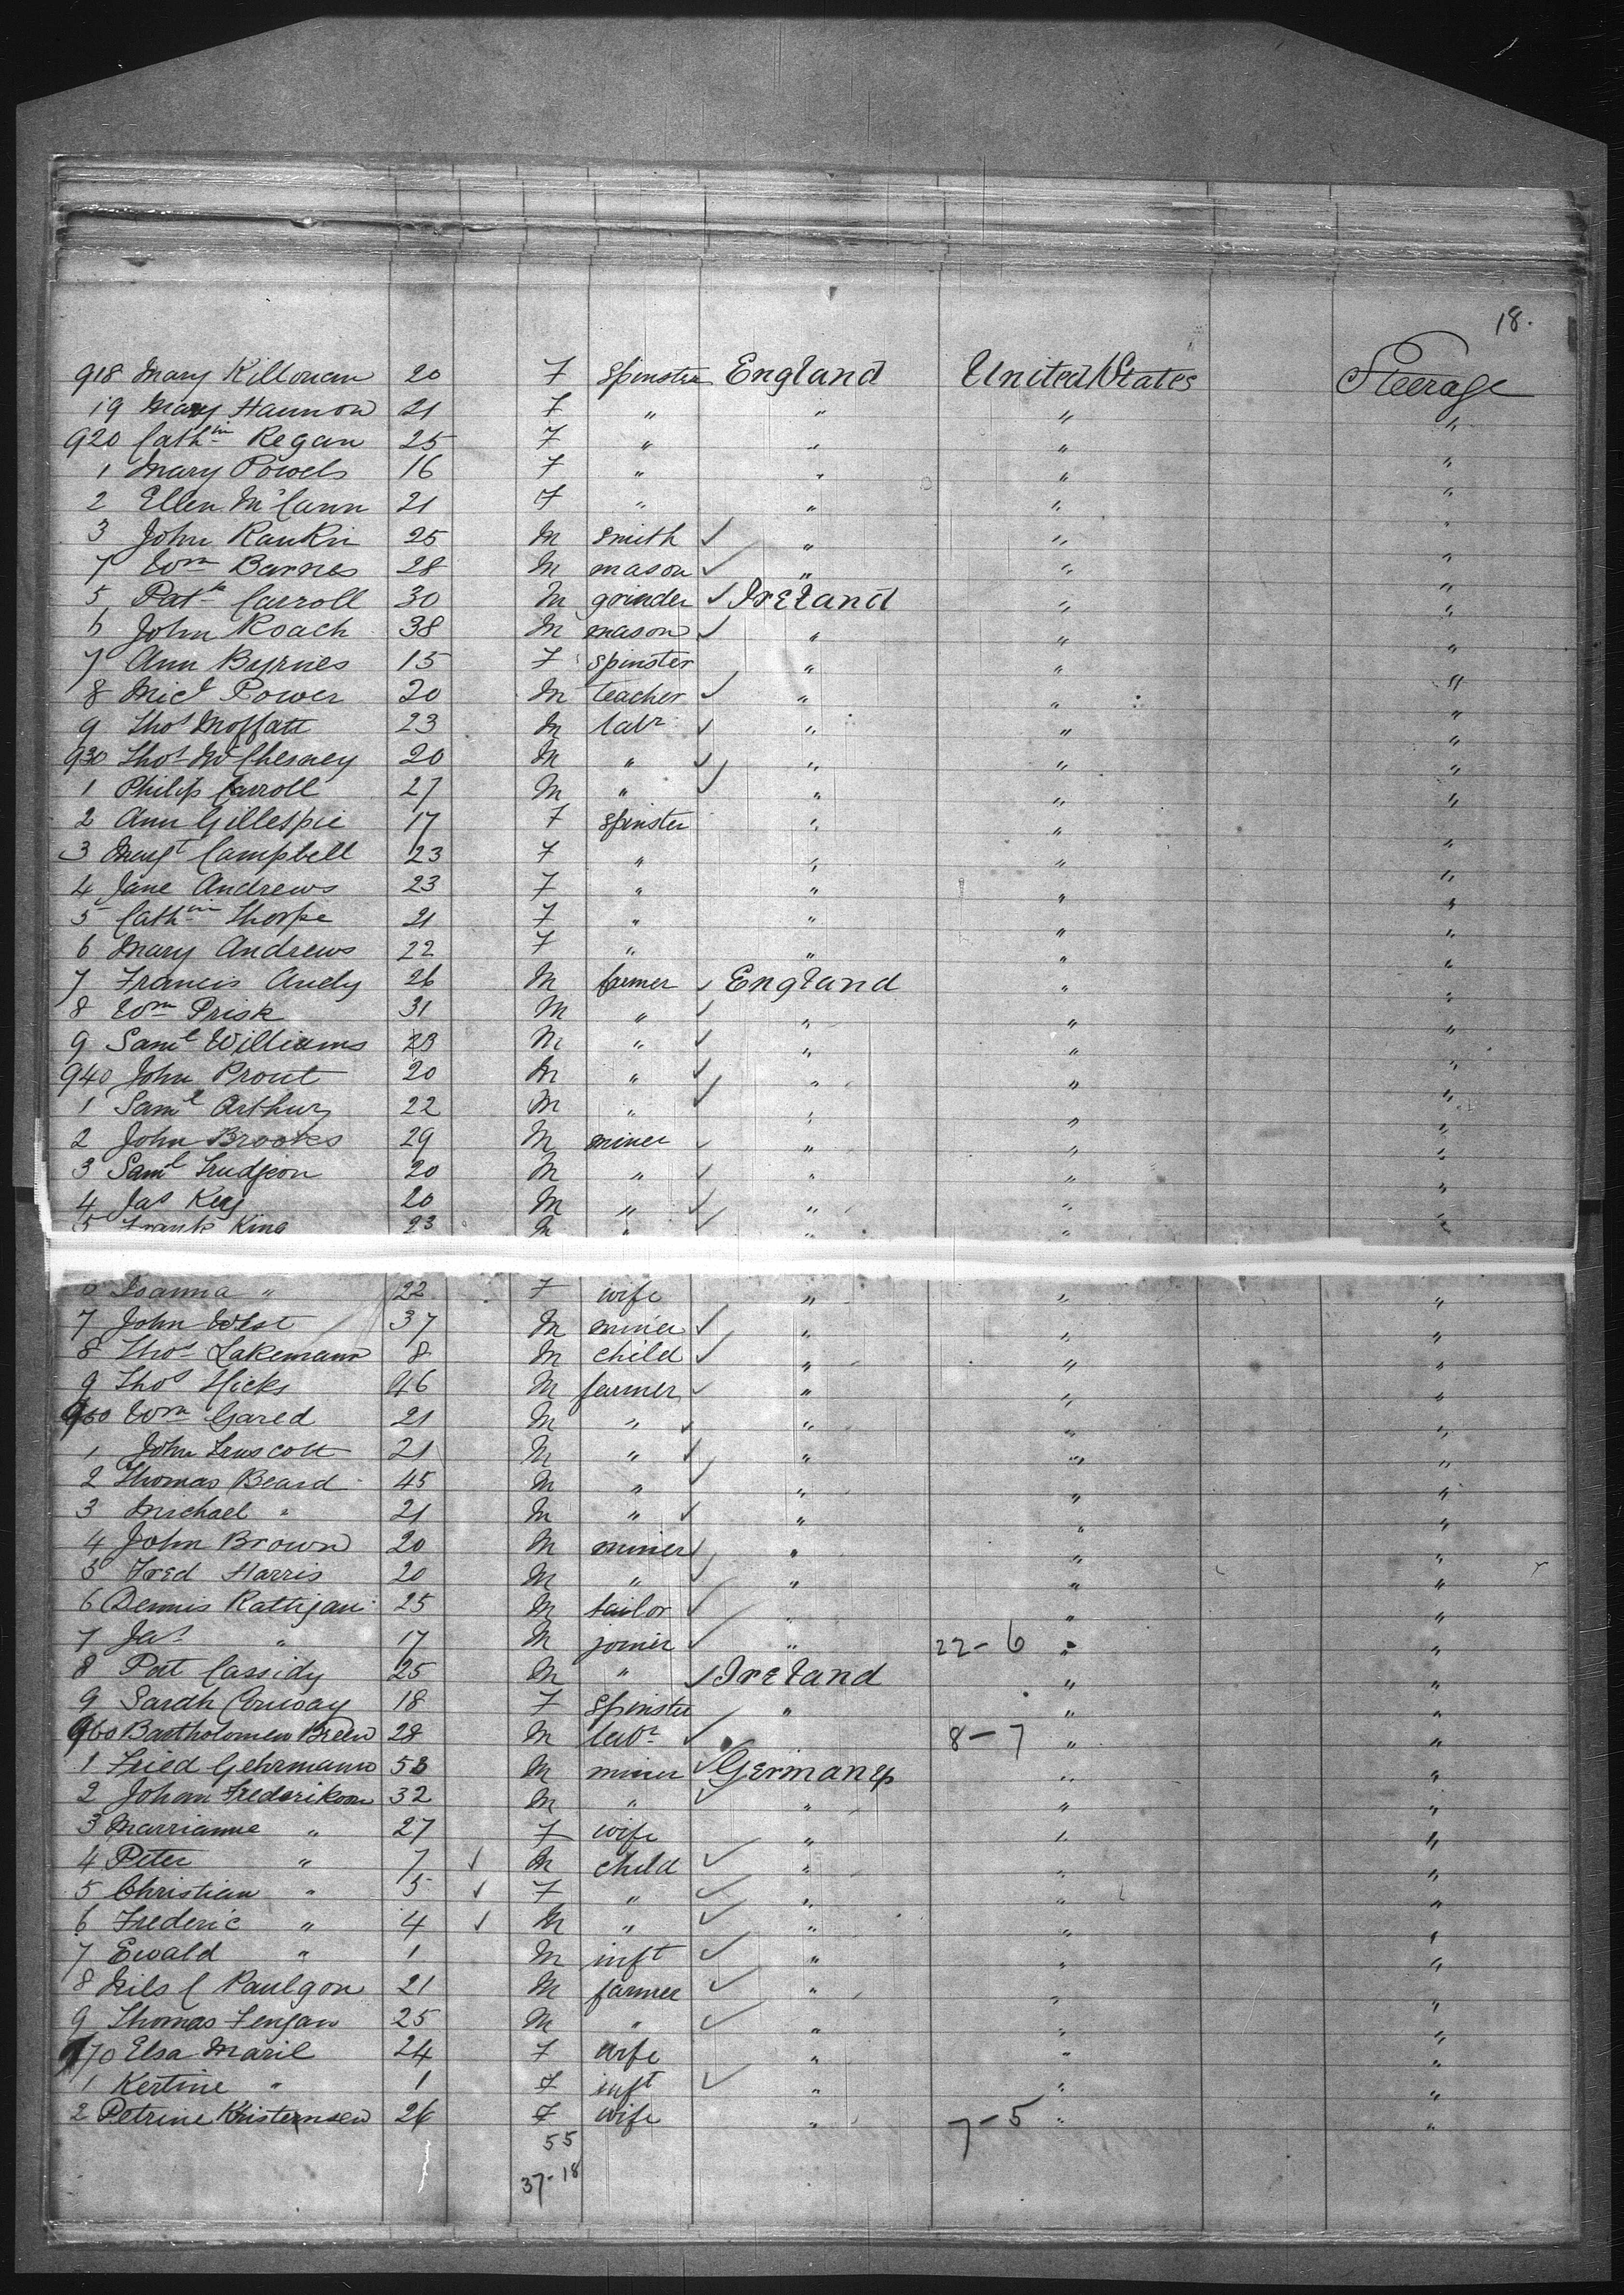 18.
918 Mary Killouran 20 F Spinster England United States Steerage
19 Mary Hannon 21 F " " " "
920 Cathin Regan 25 F " " " "
1 Mary Powels 16 F " " " "
2 Ellen McCann 21 F " " " "
3 John Rankin 25 M Smith ✓ " " "
7 Wm Barnes 28 M mason ✓ " " "
5 Patk Carroll 30 M grinder ✓ Ireland " "
6 John Roach 38 M mason ✓ " " "
7 Ann Byrnes 15 F Spinster " " "
8 Micl Power 20 M teacher ✓ " " "
9 Thos Moffatt 23 M labr ✓ " " "
930 Thos McChesney 20 M " ✓ " " "
1 Philip Carroll 27 M " ✓ " " "
2 Ann Gillespie 17 F spinster " " "
3 Margt Campbell 23 F " " " "
4 Jane Andrews 23 F " " " "
5 Cathin Thorpe 21 F " " " "
6 Mary Andrews 22 F " " " "
7 Francis Andy 26 M farmer ✓ England " "
8 Wm Prisk 31 M " ✓ " " "
9 Saml Williams 23 M " ✓ " " "
940 John Prout 20 M " ✓ " " "
1 Saml Arthur 22 M " ✓ " " "
2 John Brookes 29 M miner ✓ " " "
3 Saml Trudjeon 20 M " ✓ " " "
4 Jas Key 20 M " ✓ " " "
5 Frank King 23 M " ✓ " " "
6 Joanna " 22 F wife " " "
7 John West 37 M miner ✓ " " "
8 Thos Lakemann 8 M child ✓ " " "
9 Thos Hicks 46 M farmer ✓ " " "
950 Wm Gared 21 M " ✓ " " "
1 John Truscott 21 M " ✓ " " "
2 Thomas Beard 45 M " ✓ " " "
3 Michael " 21 M " ✓ " " "
4 John Brown 20 M miner ✓ " " "
5 Fred Harris 20 M " ✓ " " "
6 Dennis Rattijan 25 M tailor ✓ " " "
7 Jas " 17 M joiner ✓ " 22-6 " "
8 Pat Cassidy 25 M " ✓ Ireland " "
9 Sarah Conway 18 F Spinster " " "
960 Bartholomew Breen 28 M labr ✓ " 8-7 " "
1 Fried Gehrmann M miner ✓ Germany " "
2 Johan Frederikson 32 M " ✓ " " "
3 Marrianne " 27 F wife " " "
4 Peter " 7 ✓ M child ✓ " " "
5 Christian " 5 ✓ F " ✓ " " "
6 Frederic " 4 ✓ M " ✓ " " "
7 Ewald " 1 M inft ✓ " " "
8 Nils C Paulgon 21 M farmer ✓ " " "
9 Thomas Fenjan 25 M " ✓ " " "
970 Elsa Maril 24 F wife " " "
1 Kertine " 1 F inft ✓ " " "
2 Petrine Kristernsen 26 F wife " 7-5 " "
55
37-18